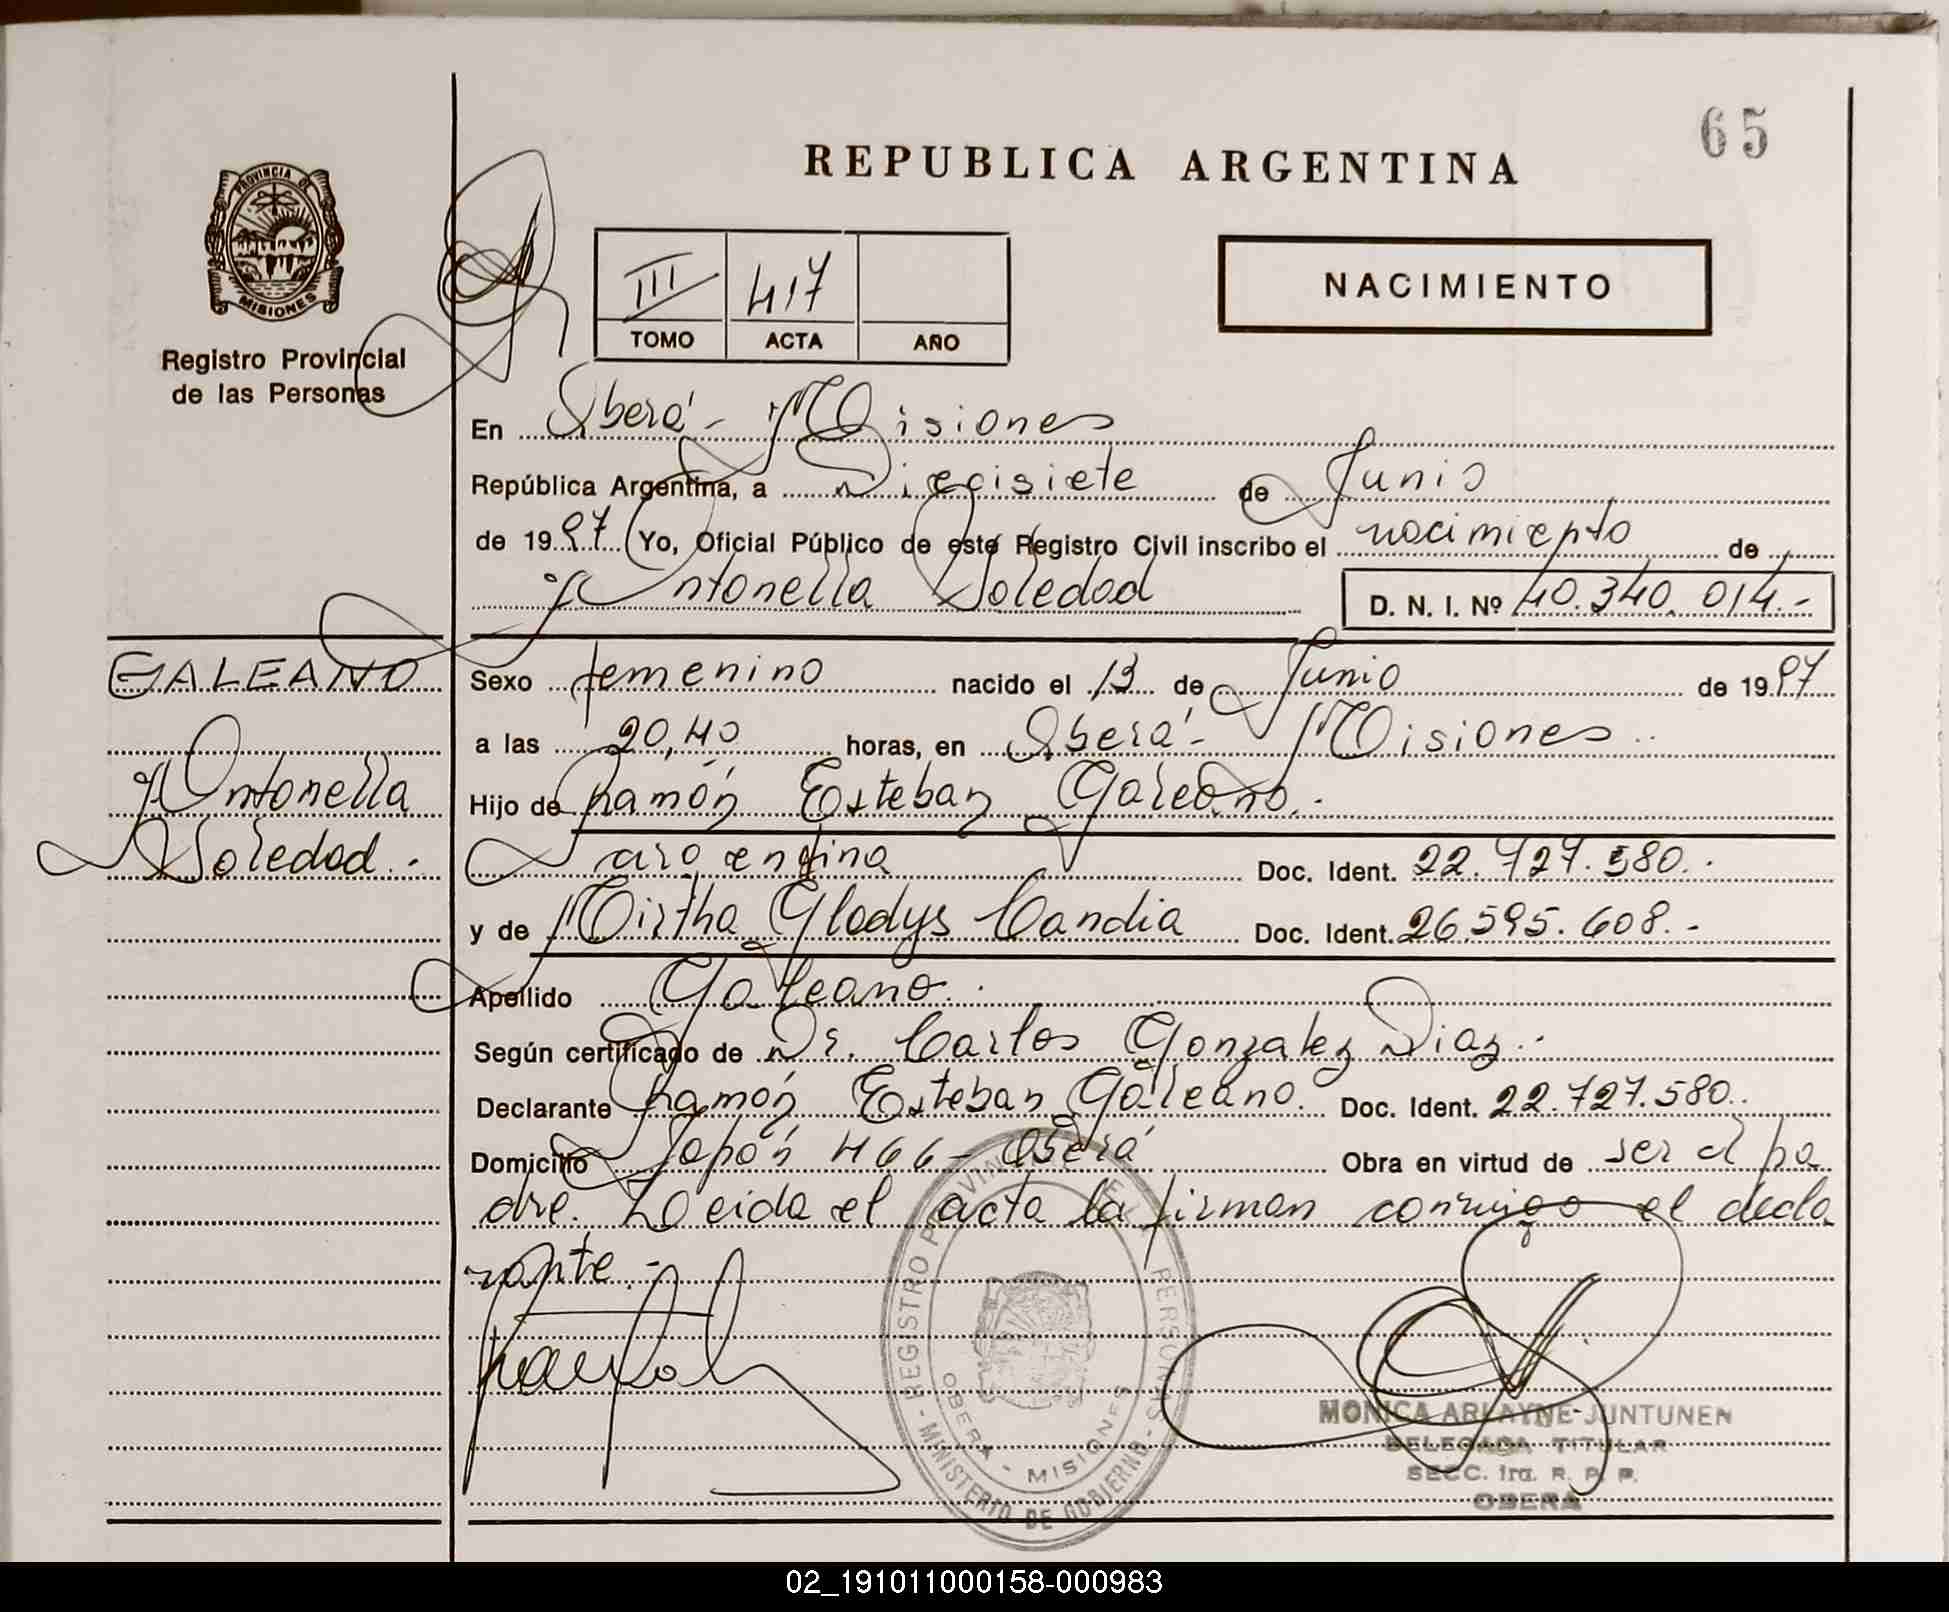 65
REPUBLICA ARGENTINA
PROVINCIA DE
MISIONES
Registro Provincial
de las Personas
III 417
TOMO ACTA AÑO
NACIMIENTO
En Oberá - Misiones
República Argentina, a Diecisiete de Junio
de 1997 Yo, Oficial Público de este Registro Civil inscribo el nacimiento de
Antonella Soledad D. N. I. Nº 40.340.014.-
GALEANO
Antonella
Soledad.-
Sexo femenino nacido el 13 de Junio de 1997
a las 20,40 horas, en Oberá - Misiones..
Hijo de Ramón Esteban Galeano.-
argentina Doc. Ident. 22.727.580.-
y de Mirtha Gladys Candia Doc. Ident. 26.595.608.-
Apellido Galeano.-
Según certificado de Dr. Carlos Gonzalez Diaz.-
Declarante Ramón Esteban Galeano. Doc. Ident. 22.727.580..
Domicilio Japón 466 - Oberá Obra en virtud de ser el pa
dre. Leida el acta la firman conmigo el decla
rante.-
REGISTRO PROVINCIAL DE LAS PERSONAS - MINISTERIO DE GOBIERNO -
OBERA - MISIONES
MONICA ARLAYNE JUNTUNEN
DELEGADA TITULAR
SECC. 1ra. R. P. P.
OBERA
02_191011000158-000983